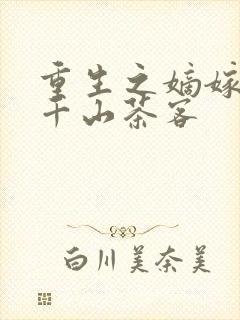 重生之嫡嫁
千山茶客
白川美奈美